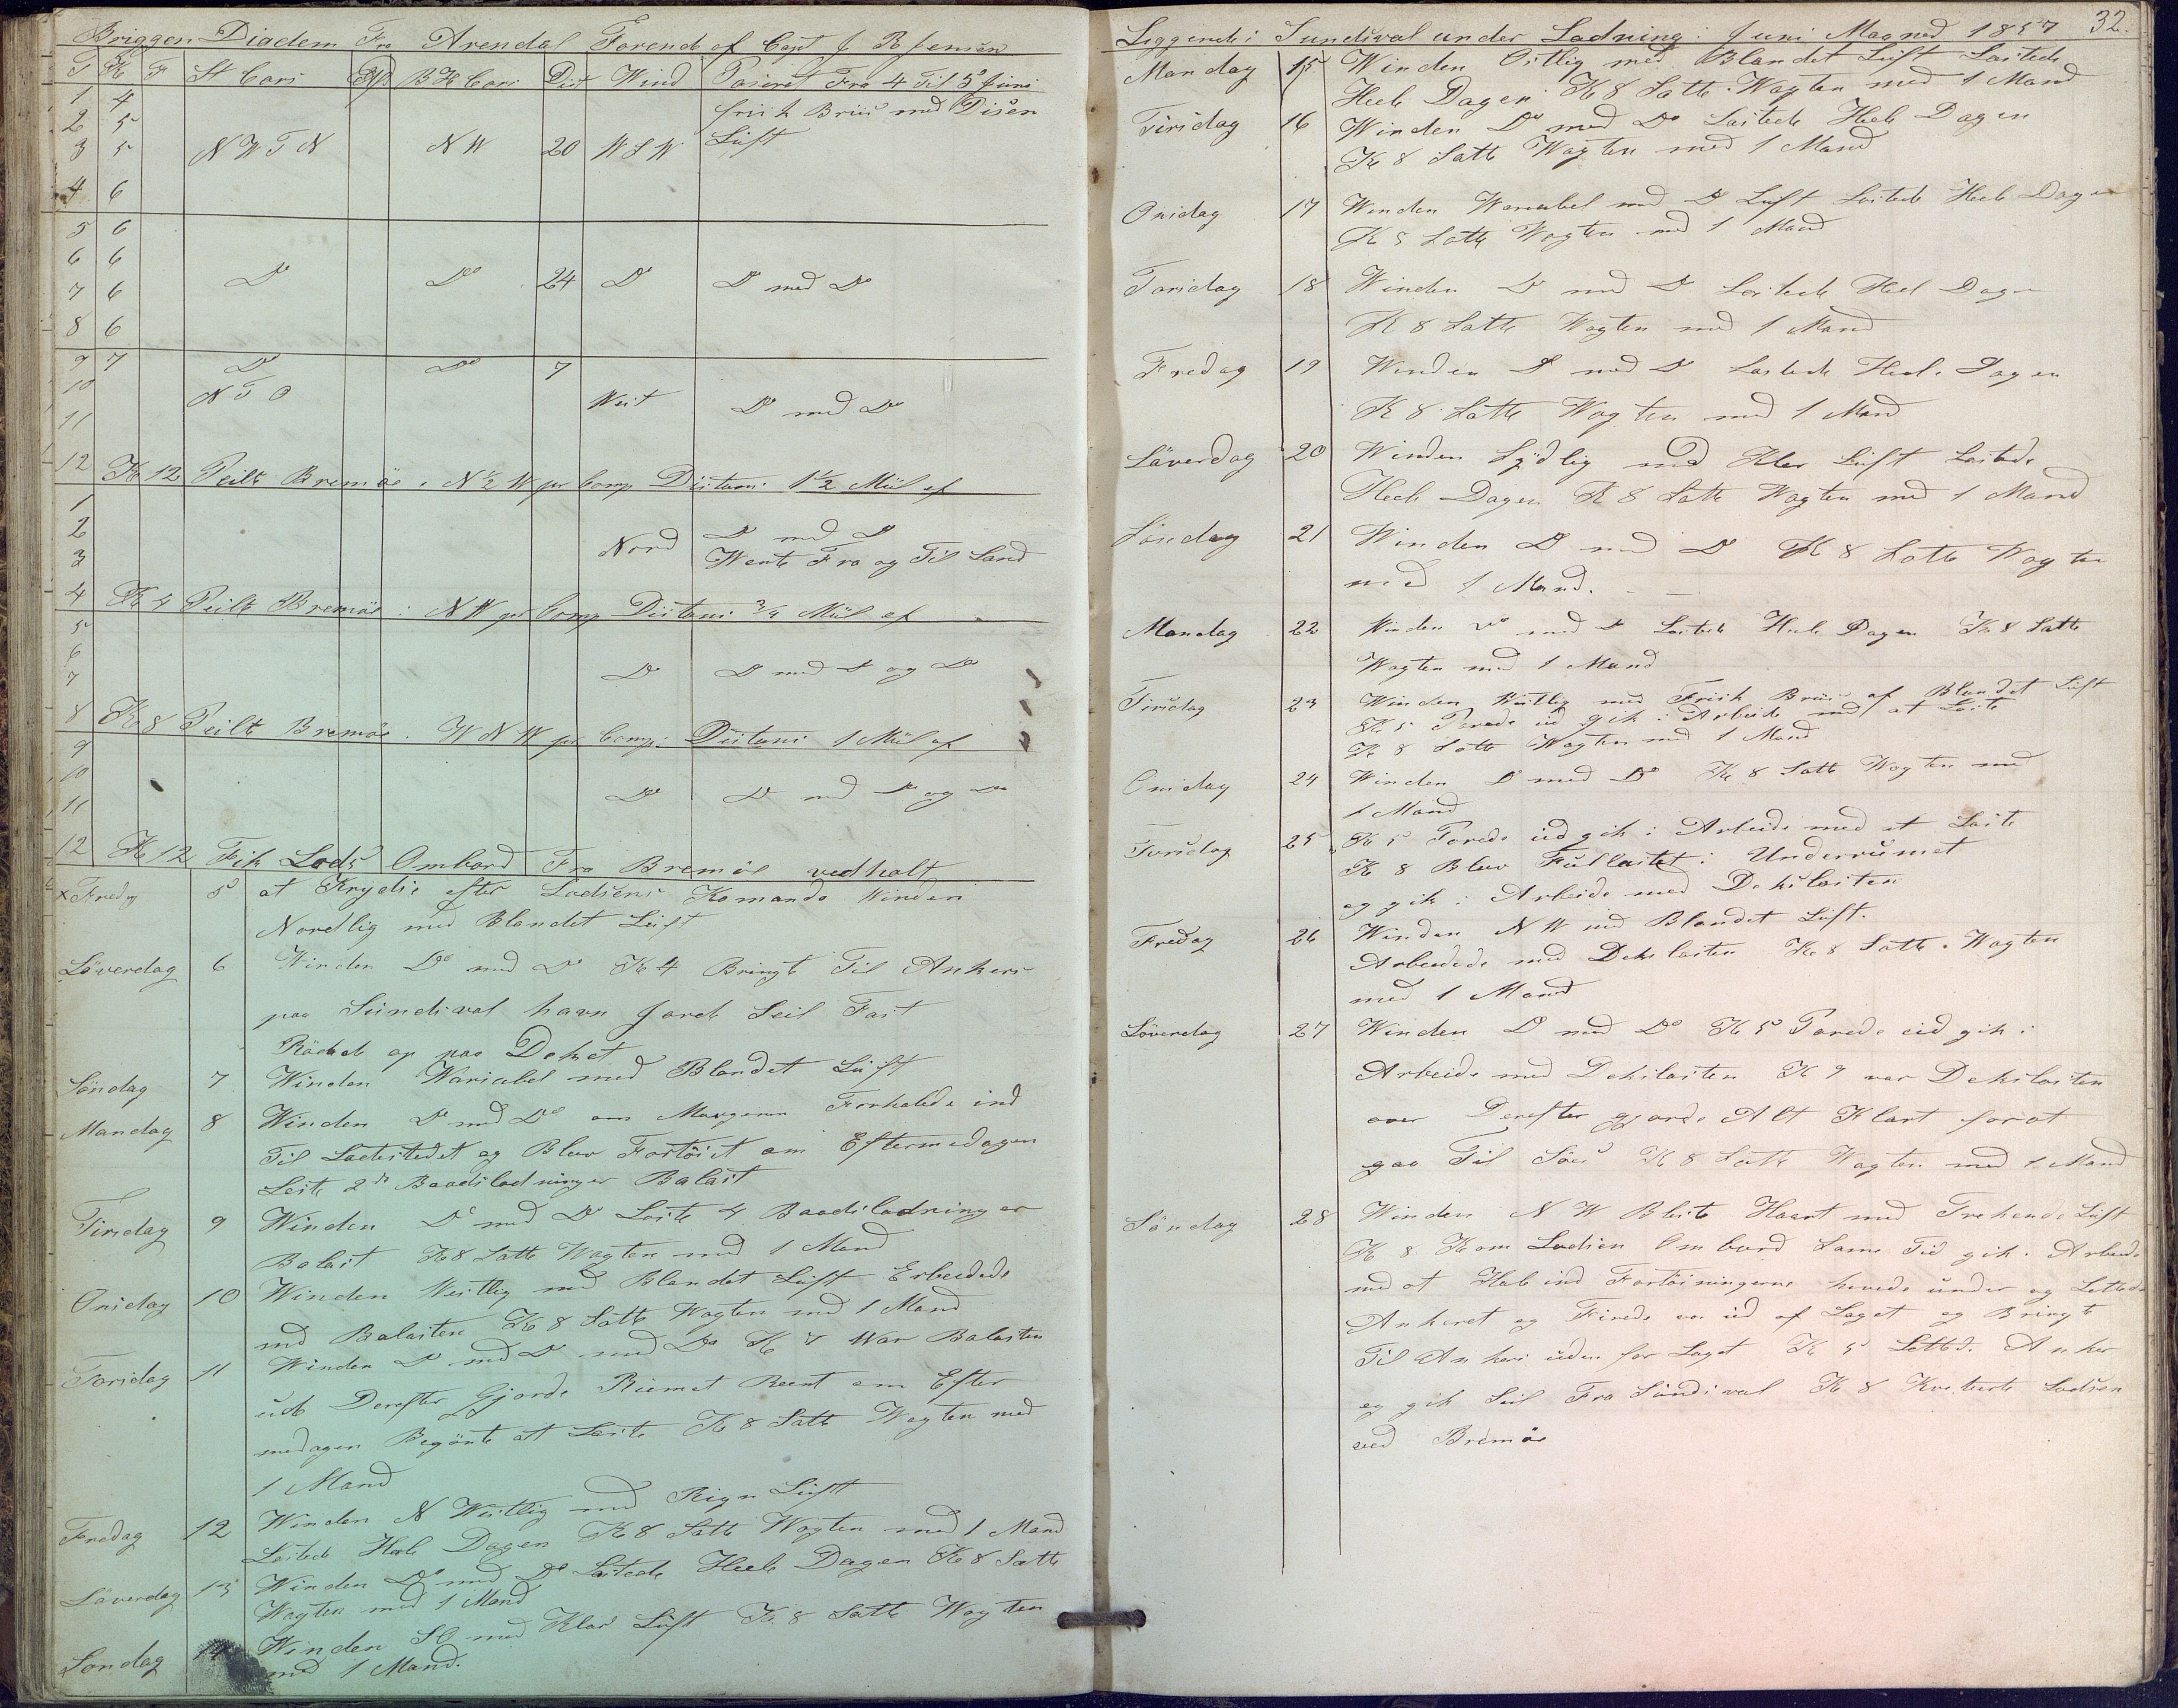 Briggen Diadem Fra Arendal Førende af Capt J R Jensen
T K F St Cors Afd BH Cors Dist Wind Passeret Fra 4 Til 5 Juni
1 4 frisk Briis med Disen
2 5 Luft
3 5 N W T N N W 20 W S W
4 6
5 6
6 6
7 6 Do Do 24 Do Do med Do
8 6
9 7 Do Do 7
10 N T O West Do med Do
11
12 Kl 12 Peilte Bremöe i N ½ W pr Comp Distans 1½ Miil af
1
2 Nord Do med Do
3 Wente Fra og Til Land
4 Kl 4 Peilte Bremöe i N W pr Comp Distans ¾ Miil af
5
6
7 Do Do med Do og Do
8 Kl 8 Peilte Bremöe i W N W pr Comp: Distans 1 Miil af
9
10
11 Do Do med Do og Do
12 Kl 12 Fik Lods Ombord Fra Bremöe vedholt
x Fredag 5 at Krydse efter Lodsens Komando Winden
Nordlig med Blandet Luft
Löverdag 6 Winden Do med Do Kl 4 Bringte Til Ankers
paa Sundsval havn gjorde Seil Fast
Rödde op paa Deket
Söndag 7 Winden Wariabel med Blandet Luft
Mandag 8 Winden Do med Do om Morgenen Forhalede ind
Til Ladestedet og Blev Fortöiet om Eftermedagen
Loste 2de Baadsladninger Balast
Tirsdag 9 Winden Do med Do Loste 4 Baadsladninger
Balast Kl 8 Satte Wagten med 1 Mand
Onsdag 10 Winden Westlig med Blandet Luft Erbeidede
med Balasten Kl 8 Satte Wagten med 1 Mand
Torsdag 11 Winden Do med Do med Do Kl 7 War Balasten
ude Derefter Gjorde Rumet Reent om Efter
medagen Begönte at Laste Kl 8 Satte Wagten med
1 Mand
Fredag 12 Winden N Westlig med Regn Luft
Lastede Hele Dagen Kl 8 Satte Wagten med 1 Mand
Löverdag 13 Winden Do med Do Lastede Heele Dagen Kl 8 Satte
Wagten med 1 Mand
Søndag 14 Winden SO med Klar Luft Kl 8 Satte Wagten
med 1 Mand.
Liggende i Sundsval under Ladning i Juni Maaned 1857 32.
Mandag 15 Winden Ostlig med Blandet Luft Lastede
Heele Dagen Kl 8 Satte Wagten med 1 Mand
Tirsdag 16 Winden Do med Do Lastede Heele Dagen
Kl 8 Satte Wagten med 1 Mand
Onsdag 17 Winden Wariabel med Do Luft Lastede Heele Dagen
Kl 8 Satte Wagten med 1 Mand
Torsdag 18 Winden Do med Do Lastede Heel Dagen
Kl 8 Satte Wagten med 1 Mand
Fredag 19 Winden Do med Do Lastede Heele Dagen
Kl 8 Satte Wagten med 1 Mand
Läverdag 20 Winden Sydlig med Klar Luft Lastede
Heele Dagen Kl 8 Satte Wagten med 1 Mand
Söndag 21 Winden Do med Do Kl 8 Satte Wagten
med 1 Mand.
Mandag 22 Winden Do med Do Lastede Heele Dagen Kl 8 Satte
Wagten med 1 Mand
Tirsdag 23 Winden Westlig med Frisk Briis af Blandet Luft
Kl 5 Purede ud gik i Arbeide med at Laste
Kl 8 Satte Wagten med 1 Mand
Onsdag 24 Winden Do med Do Kl 8 Satte Wagten med
1 Mand
Torsdag 25 Kl 5 Purede ud gik i Arbeide med at Laste
Kl 8 Blev Fullastet i Underrumet
og gik i Arbeide med Dekslasten
Fredag 26 Winden N W med Blandet Luft.
Arbeidede med Dekslasten Kl 8 Satte Wagten
med 1 Mand
Löverdag 27 Winden Do med Do Kl 5 Purede ud gik i
Arbeide med Dekslasten Kl 9 var Dekslasten
over Derefter gjorde Alt Klart for at
gaa Til Söes Kl 8 Satte Wagten med 1 Mand
Söndag 28 Winden N W Bleste Haart med Trekende Luft
Kl 8 Kom Lodsen Ombord Same Tid gik i Arbeide
med at Hale ind Fortöiningerne hevede under og Lettede
Ankeret og Firede os ud af Laget og Bringte
Til Ankers uden for Laget Kl 5 Lettede Anker
og gik Seil Fra Sundsval Kl 8 Kviterte Lodsen
ved Bremöe